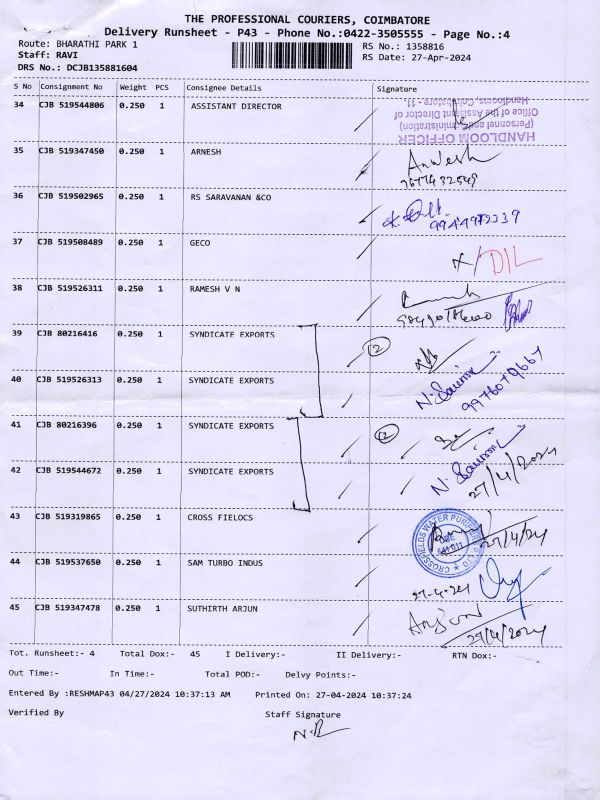 THE PROFESSIONAL COURIERS, COIMBATORE
Delivery Runsheet - P43 - Phone No.:0422-3505555 - Page No.:4
Route: BHARATHI PARK 1
RS No.: 1358816
Staff: RAVI
RS Date: 27-Apr-2024
DRS No.: DCJB135881604
S No Consignment No Weight PCS Consignee Details Signature
34 CJB 519544806 0.250 1 ASSISTANT DIRECTOR
HANDLOOM OFFICER
(Personnel and Administration)
Office of the Assistant Director of
Handlooms, Coimbatore - 11.
35 CJB 519347450 0.250 1 ARNESH
36 CJB 519502965 0.250 1 RS SARAVANAN &CO
37 CJB 519508489 0.250 1 GECO
DIL
38 CJB 519526311 0.250 1 RAMESH V N
39 CJB 80216416 0.250 1 SYNDICATE EXPORTS
2
40 CJB 519526313 0.250 1 SYNDICATE EXPORTS
9976079667
41 CJB 80216396 0.250 1 SYNDICATE EXPORTS
2
42 CJB 519544672 0.250 1 SYNDICATE EXPORTS
27/4/2024
43 CJB 519319865 0.250 1 CROSS FIELOCS
27/4/24
44 CJB 519537650 0.250 1 SAM TURBO INDUS
27-4-24
45 CJB 519347478 0.250 1 SUTHIRTH ARJUN
Arjun
27/4/2024
Tot. Runsheet:- 4 Total Dox:- 45 I Delivery:- II Delivery:- RTN Dox:-
Out Time:- In Time:- Total POD:- Delvy Points:-
Entered By :RESHMAP43 04/27/2024 10:37:13 AM Printed On: 27-04-2024 10:37:24
Verified By Staff Signature